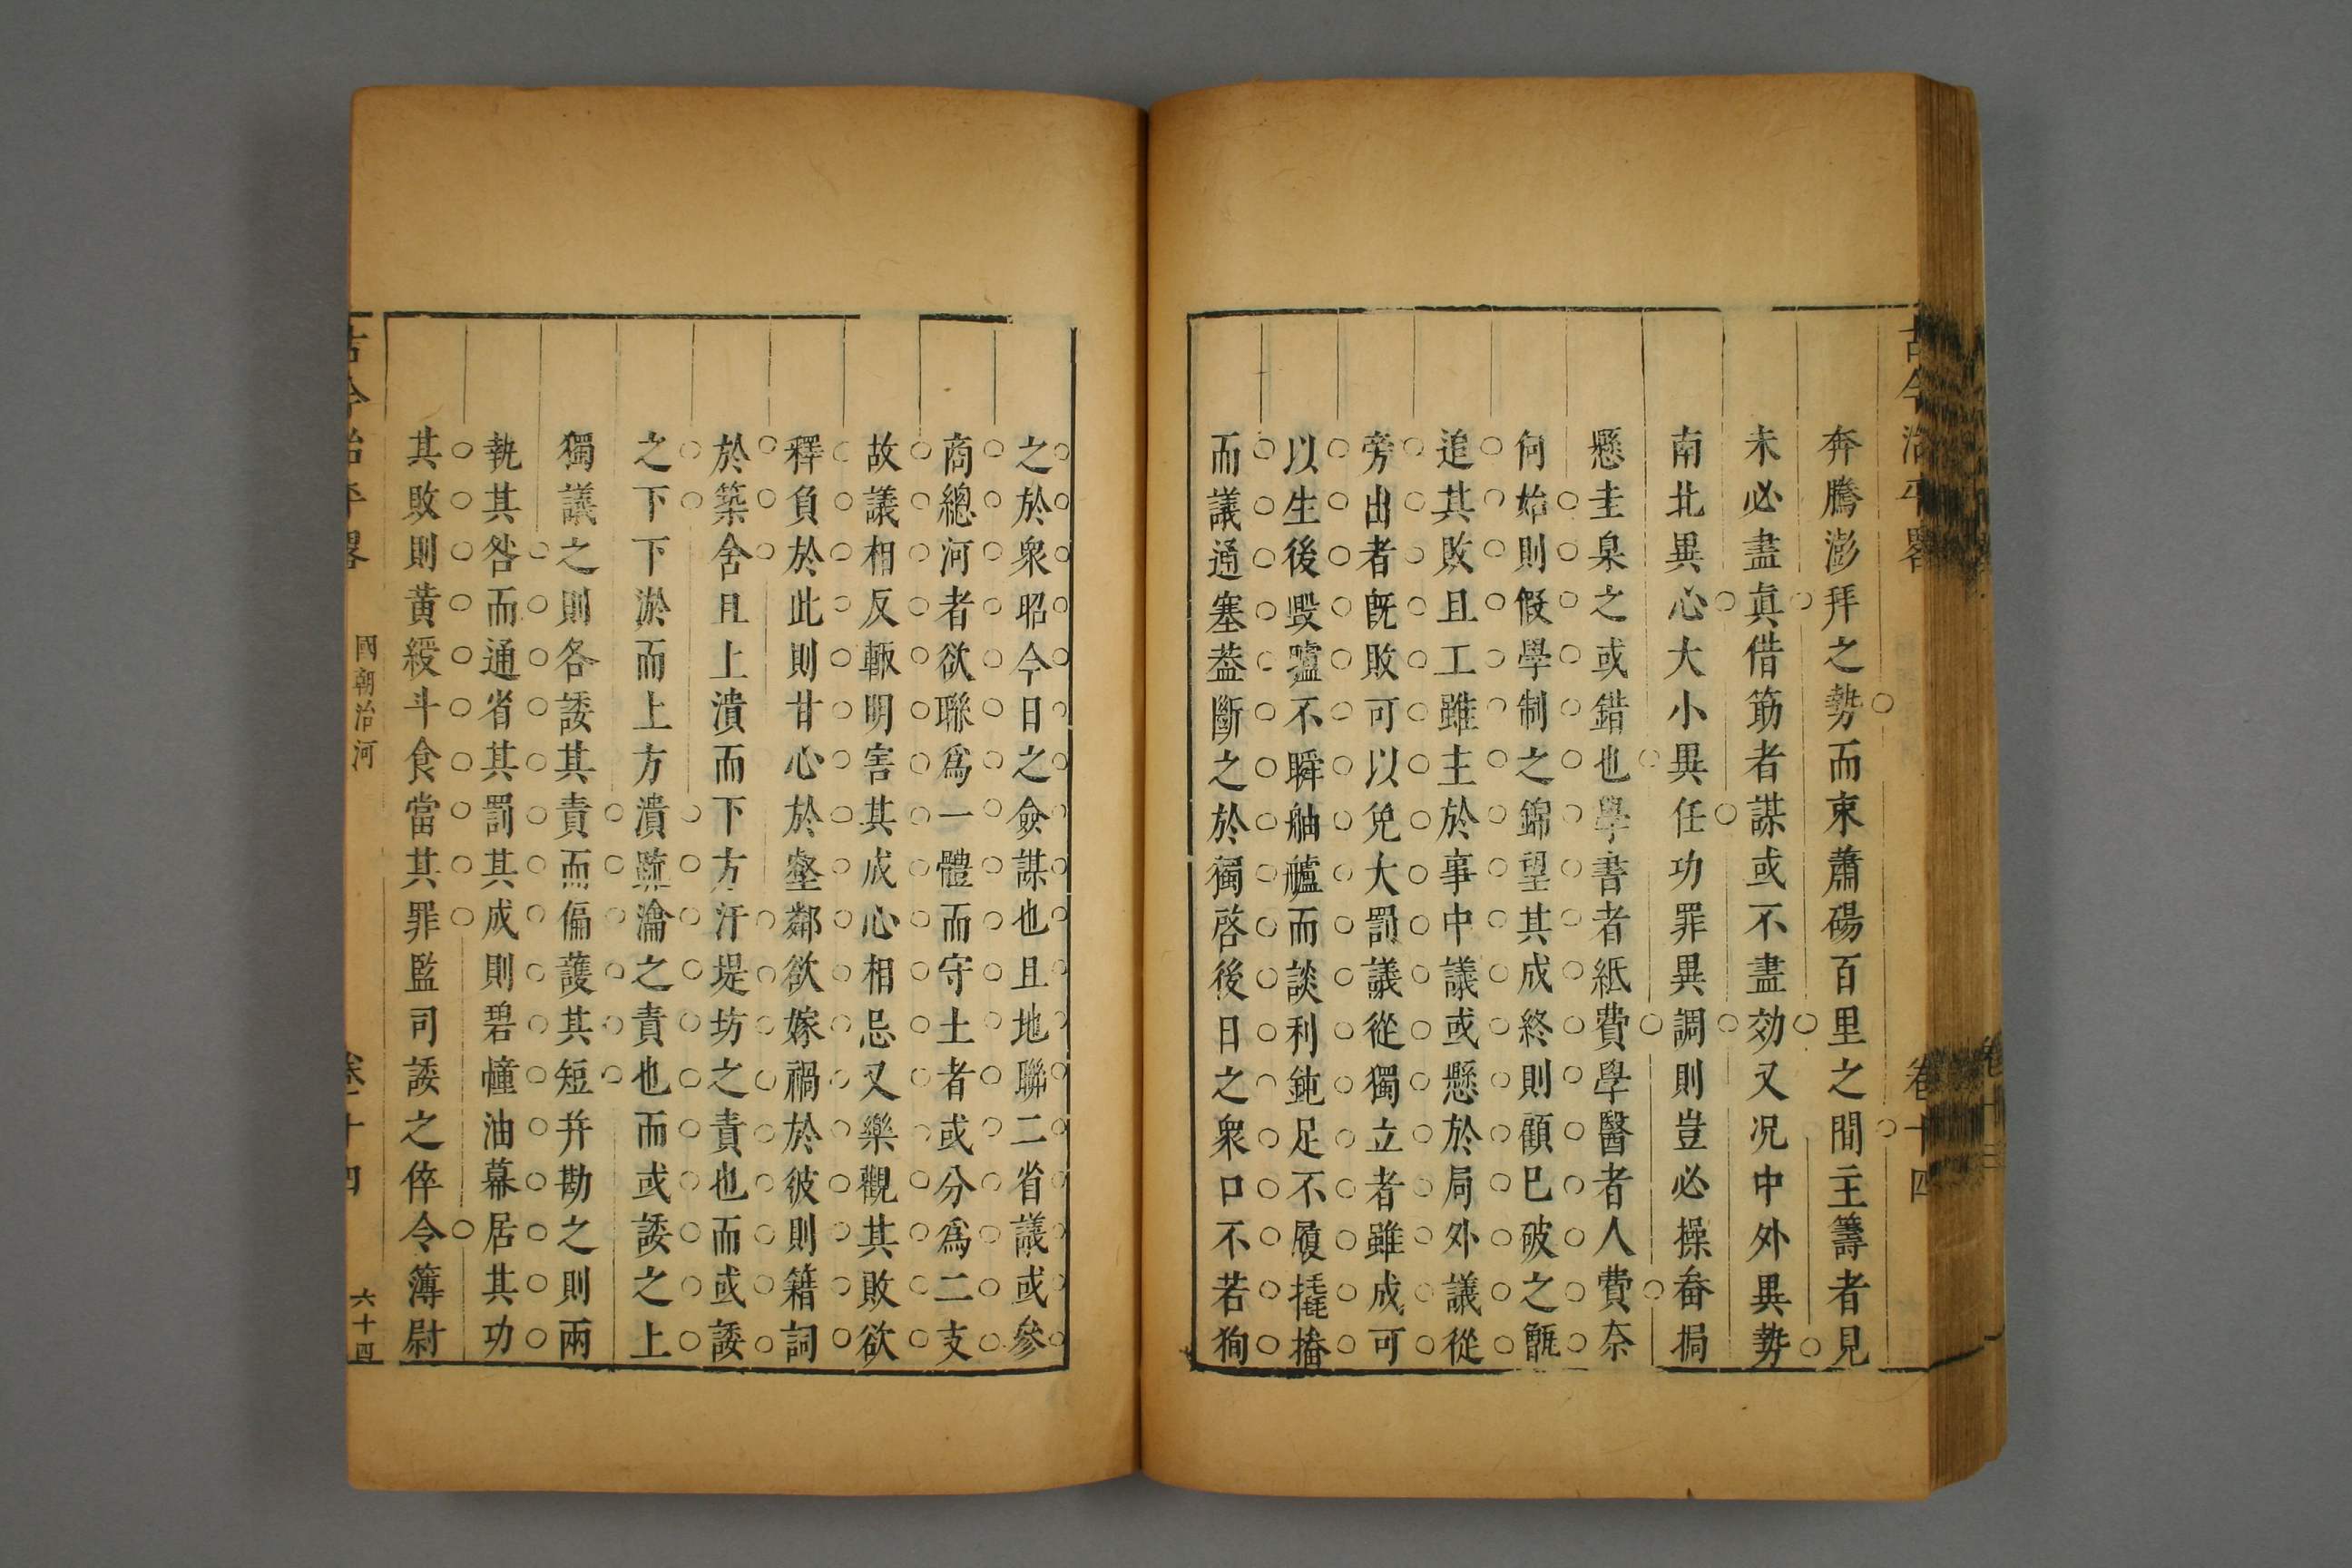 古今治平畧
卷十四
奔騰澎拜之勢而束蕭碭百里之間主籌者見
未必盡真借筯者謀或不盡効又况中外異勢
南北異心大小異任功罪異調則豈必操畚挶
懸圭臬之或錯也學書者紙費學醫者人費奈
何始則假學制之錦望其成終則顧已破之甑
追其敗且工雖主於事中議或懸於局外議從
旁出者旣敗可以免大罰議從獨立者雖成可
以生後毀壚不瞬舳艫而談利鈍足不履撬㩥
而議通塞葢斷之於獨啓後日之衆口不若狥
之於衆昭今日之僉謀也且地聯二省議或參
商總河者欲聯爲一體而守土者或分爲二支
故議相反輙明害其成心相忌又樂觀其敗欲
釋負於此則甘心於壑鄰欲嫁禍於彼則籍詞
於築舍且上潰而下方汙堤坊之責也而或諉
之下下淤而上方潰疏瀹之責也而或諉之上
獨議之則各諉其責而偏護其短并勘之則兩
執其咎而通省其罰其成則碧幢油幕居其功
其敗則黃綬斗食當其罪監司諉之倅令簿尉
古今治平畧
國朝治河
卷十四
六十四